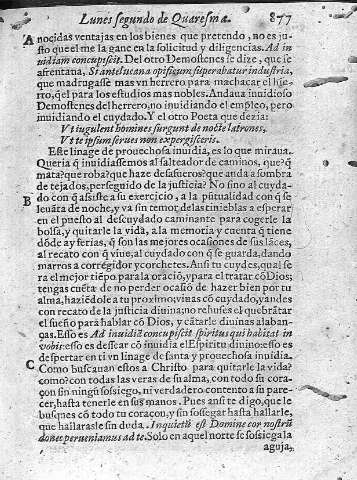 Lunes segundo de Quaresma. 877
A nocidas ventajas en los bienes que pretendo, no es ju-
sto que el me la gane en la solicitud y diligencias. Ad in
uidiam concupiscit. Del otro Demostenes se dize, que se
afrentaua, Si antelucana opificum superabatur industria,
que madrugasse mas vn herrero para machacar el hie-
rro, q̃ el para los estudios mas nobles. Andaua inuidioso
Demostenes del herrero, no inuidiando el empleo, pero
inuidiando el cuydado. Y el otro Poeta que dezia:
Vt iugulent homines surgunt de nocte latrones,
Vt te ipsum serues non expergisceris.
Este linage de prouechosa inuidia, es lo que miraua.
Queria q̃ inuidiassemos al salteador de caminos, que? q̃
mata? que roba? que haze desafueros? que anda a sombra
de tejados, perseguido de la justicia? No sino al cuyda-
B do con q̃ assiste a su exercicio, a la pũtualidad con q̃ se
leuãta de noche, y va sin temor de las tinieblas a esperar
en el puesto al descuydado caminante para cogerle la
bolsa, y quitarle la vida, a la memoria y cuenta q̃ tiene
dõde ay ferias, q̃ son las mejores ocasiones de sus lãces,
al recato con q̃ viue, al cuydado con q̃ se guarda, dando
marros a corregidor y corchetes. Assi tu cuydes, qual se
ra el mejor tiẽpo para la oraciõ, y para el tratar cõ Dios;
tengas cuẽta de no perder ocasiõ de hazer bien por tu
alma, haziẽdole a tu proximo: viuas cõ cuydado, y andes
con recato de la justicia diuina; no rehuses el quebrãtar
el sueño para hablar cõ Dios, y cãtarle diuinas alaban-
ças. Esso es Ad inuidiã concupiscit spiritus qui habitat in
vobis: esso es dessear cõ inuidia el Espiritu diuino: esso es
despertar en ti vn linage de santa y prouechosa inuidia.
C Como buscauan estos a Christo para quitarle la vida?
como? con todas las veras de su alma, con todo su cora-
çon sin ningũ sossiego, ni verdadero contento a su pare-
cer, hasta tenerle en sus manos. Pues ansi te digo, que le
busques cõ todo tu coraçon, y sin sossegar hasta hallarle,
que hallarasle sin duda. Inquietũ est Domine cor nostrũ
donec perueniamus ad te. Solo en aquel norte se sossiega la
aguja,